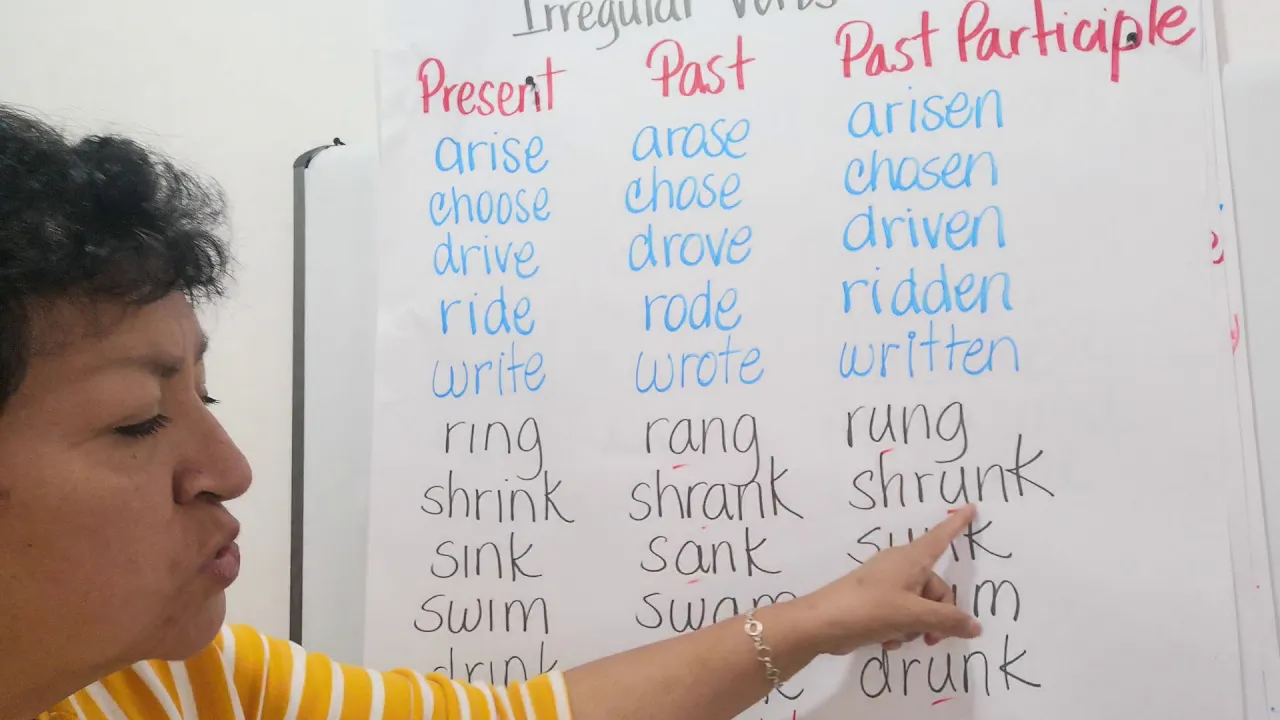 Irregular Verbs
Present Past Past Participle
arise arose arisen
choose chose chosen
drive drove driven
ride rode ridden
write wrote written
ring rang rung
shrink shrank shrunk
sink sank sunk
swim swam
drink drunk